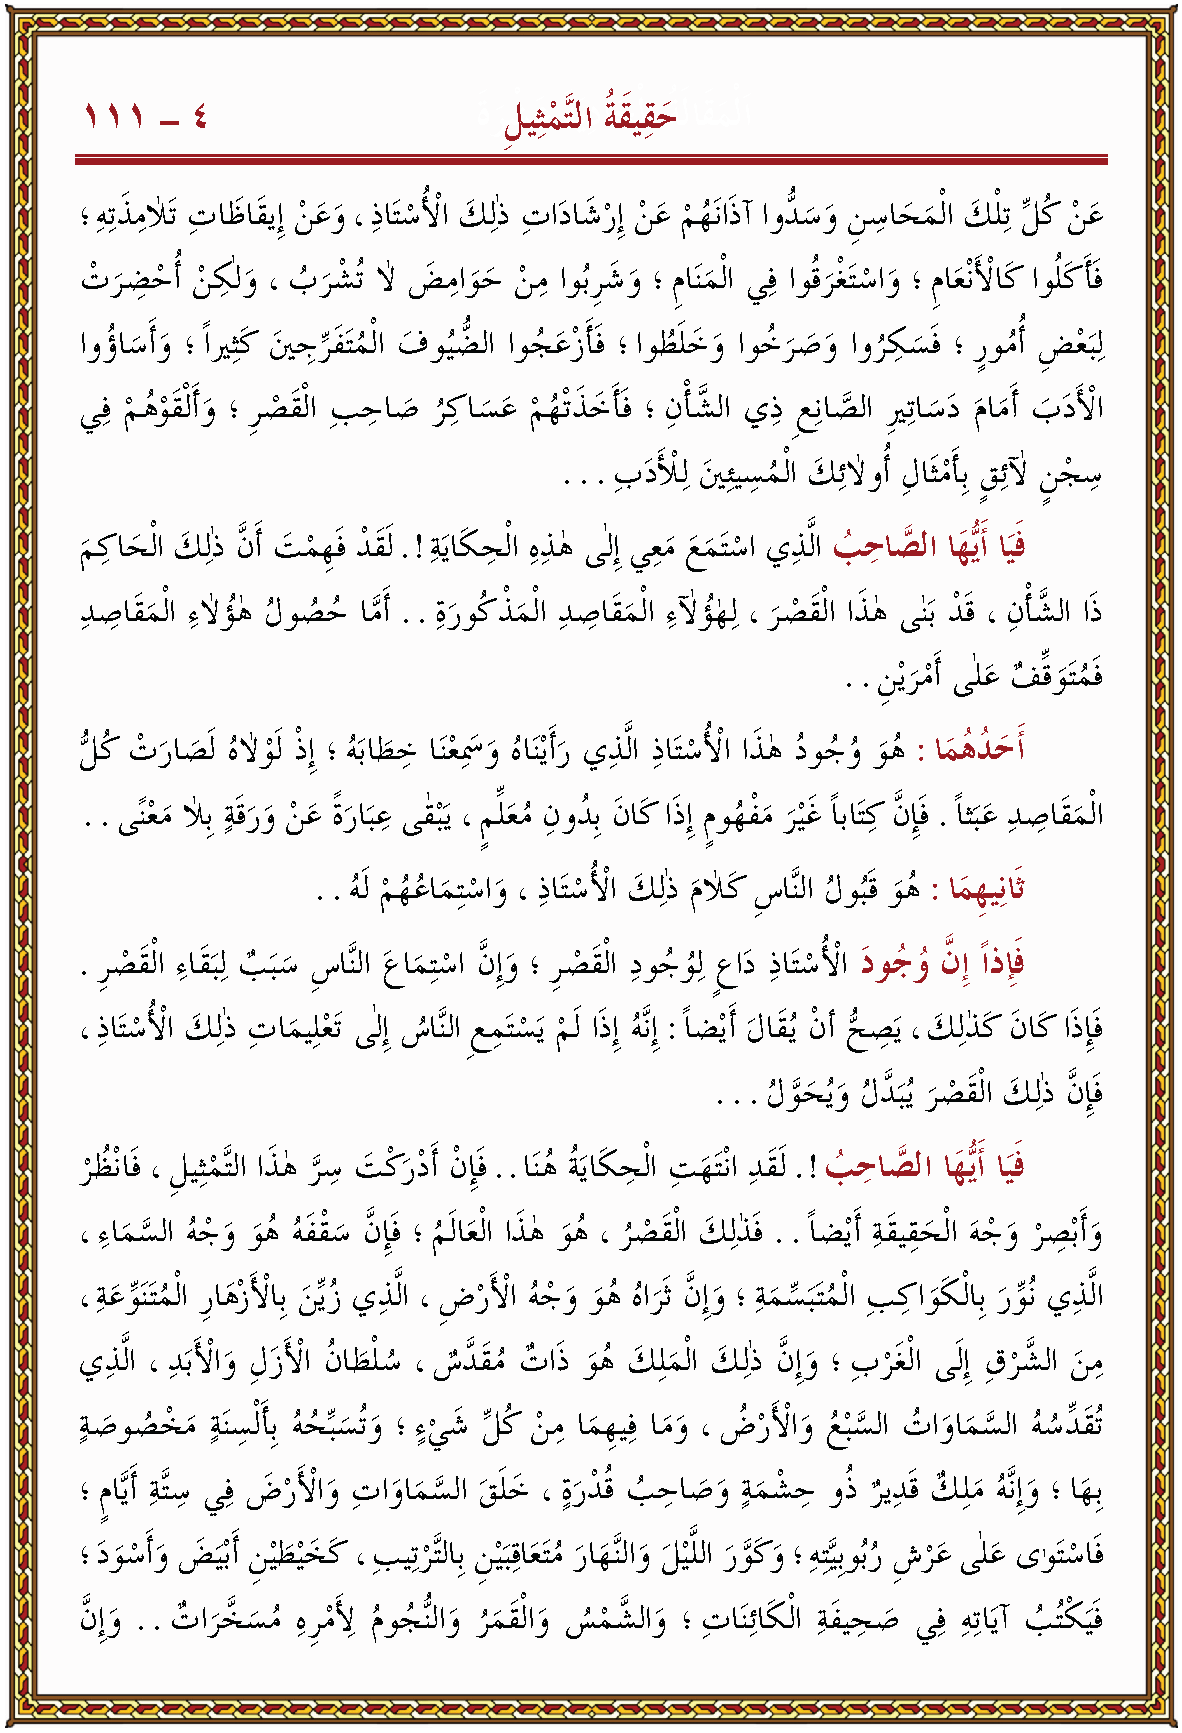 حَقِيقَةُ التَّمْثِيلِ ٤ – ١١١
عَنْ كُلِّ تِلْكَ الْمَحَاسِنِ وَسَدُّوا آذَانَهُمْ عَنْ إِرْشَادَاتِ ذٰلِكَ الْأُسْتَاذِ ، وَعَنْ إِيقَاظَاتِ تَلاٰمِذَتِهِ ؛
فَأَكَلُوا كَالْأَنْعَامِ ؛ وَاسْتَغْرَقُوا فِي الْمَنَامِ ؛ وَشَرِبُوا مِنْ حَوَامِضَ لاٰ تُشْرَبُ ، وَلٰكِنْ أُحْضِرَتْ
لِبَعْضِ أُمُورٍ ؛ فَسَكِرُوا وَصَرَخُوا وَخَلَطُوا ؛ فَأَزْعَجُوا الضُّيُوفَ الْمُتَفَرِّجِينَ كَثِيراً ؛ وَأَسَاؤُوا
الْأَدَبَ أَمَامَ دَسَاتِيرِ الصَّانِعِ ذِي الشَّأْنِ ؛ فَأَخَذَتْهُمْ عَسَاكِرُ صَاحِبِ الْقَصْرِ ؛ وَأَلْقَوْهُمْ فِي
سِجْنٍ لاٰئِقٍ بِأَمْثَالِ أُولاٰئِكَ الْمُسِيئِينَ لِلْأَدَبِ . . .
فَيَا أَيُّهَا الصَّاحِبُ الَّذِي اسْتَمَعَ مَعِي إِلٰى هٰذِهِ الْحِكَايَةِ ! . لَقَدْ فَهِمْتَ أَنَّ ذٰلِكَ الْحَاكِمَ
ذَا الشَّأْنِ ، قَدْ بَنٰى هٰذَا الْقَصْرَ ، لِهٰؤُلاٰءِ الْمَقَاصِدِ الْمَذْكُورَةِ . . أَمَّا حُصُولُ هٰؤُلاٰءِ الْمَقَاصِدِ
فَمُتَوَقِّفٌ عَلٰى أَمْرَيْنِ . .
أَحَدُهُمَا : هُوَ وُجُودُ هٰذَا الْأُسْتَاذِ الَّذِي رَأَيْنَاهُ وَسَمِعْنَا خِطَابَهُ ؛ إِذْ لَوْلاٰهُ لَصَارَتْ كُلُّ
الْمَقَاصِدِ عَبَثاً . فَإِنَّ كِتَاباً غَيْرَ مَفْهُومٍ إِذَا كَانَ بِدُونِ مُعَلِّمٍ ، يَبْقٰى عِبَارَةً عَنْ وَرَقَةٍ بِلاٰ مَعْنًى . .
ثَانِيهِمَا : هُوَ قُبُولُ النَّاسِ كَلاٰمَ ذٰلِكَ الْأُسْتَاذِ ، وَاسْتِمَاعُهُمْ لَهُ . .
فَإِذاً إِنَّ وُجُودَ الْأُسْتَاذِ دَاعٍ لِوُجُودِ الْقَصْرِ ؛ وَإِنَّ اسْتِمَاعَ النَّاسِ سَبَبٌ لِبَقَاءِ الْقَصْرِ .
فَإِذَا كَانَ كَذٰلِكَ ، يَصِحُّ أَنْ يُقَالَ أَيْضاً : إِنَّهُ إِذَا لَمْ يَسْتَمِعِ النَّاسُ إِلٰى تَعْلِيمَاتِ ذٰلِكَ الْأُسْتَاذِ ،
فَإِنَّ ذٰلِكَ الْقَصْرَ يُبَدَّلُ وَيُحَوَّلُ . . .
فَيَا أَيُّهَا الصَّاحِبُ ! . لَقَدِ انْتَهَتِ الْحِكَايَةُ هُنَا . . فَإِنْ أَدْرَكْتَ سِرَّ هٰذَا التَّمْثِيلِ ، فَانْظُرْ
وَأَبْصِرْ وَجْهَ الْحَقِيقَةِ أَيْضاً . . فَذٰلِكَ الْقَصْرُ ، هُوَ هٰذَا الْعَالَمُ ؛ فَإِنَّ سَقْفَهُ هُوَ وَجْهُ السَّمَاءِ ،
الَّذِي نُوِّرَ بِالْكَوَاكِبِ الْمُتَبَسِّمَةِ ؛ وَإِنَّ ثَرَاهُ هُوَ وَجْهُ الْأَرْضِ ، الَّذِي زُيِّنَ بِالْأَزْهَارِ الْمُتَنَوِّعَةِ ،
مِنَ الشَّرْقِ إِلَى الْغَرْبِ ؛ وَإِنَّ ذٰلِكَ الْمَلِكَ هُوَ ذَاتٌ مُقَدَّسٌ ، سُلْطَانُ الْأَزَلِ وَالْأَبَدِ ، الَّذِي
تُقَدِّسُهُ السَّمَاوَاتُ السَّبْعُ وَالْأَرْضُ ، وَمَا فِيهِمَا مِنْ كُلِّ شَيْءٍ ؛ وَتُسَبِّحُهُ بِأَلْسِنَةٍ مَخْصُوصَةٍ
بِهَا ؛ وَإِنَّهُ مَلِكٌ قَدِيرٌ ذُو حِشْمَةٍ وَصَاحِبُ قُدْرَةٍ ، خَلَقَ السَّمَاوَاتِ وَالْأَرْضَ فِي سِتَّةِ أَيَّامٍ ؛
فَاسْتَوٰى عَلٰى عَرْشِ رُبُوبِيَّتِهِ ؛ وَكَوَّرَ اللَّيْلَ وَالنَّهَارَ مُتَعَاقِبَيْنِ بِالتَّرْتِيبِ ، كَخَيْطَيْنِ أَبْيَضَ وَأَسْوَدَ ؛
فَيَكْتُبُ آيَاتِهِ فِي صَحِيفَةِ الْكَائِنَاتِ ؛ وَالشَّمْسُ وَالْقَمَرُ وَالنُّجُومُ لِأَمْرِهِ مُسَخَّرَاتٌ . . وَإِنَّ